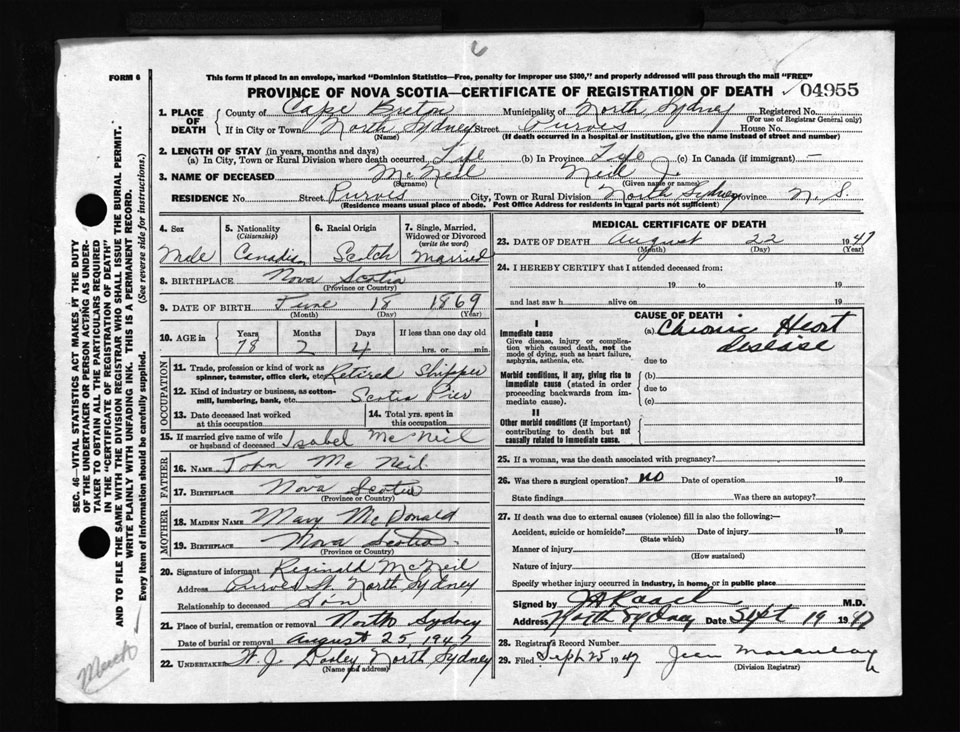 FORM 6
This form if placed in an envelope, marked "Dominion Statistics—Free, penalty for improper use $300," and properly addressed will pass through the mail "FREE"
PROVINCE OF NOVA SCOTIA—CERTIFICATE OF REGISTRATION OF DEATH 04955
1. PLACE OF DEATH County of Cape Breton Municipality of North Sydney Registered No.
(For use of Registrar General only)
If in City or Town North Sydney Street Purves House No.
(Name) (If death occurred in a hospital or institution, give the name instead of street and number)
2. LENGTH OF STAY (in years, months and days)
(a) In City, Town or Rural Division where death occurred Life (b) In Province Life (c) In Canada (if immigrant) —
3. NAME OF DECEASED McNeil Neil J.
(Surname) (Given name or names)
RESIDENCE No. Street Purves City, Town or Rural Division North Sydney Province N.S.
(Residence means usual place of abode. Post Office Address for residents in rural parts not sufficient)
4. Sex 5. Nationality (Citizenship) 6. Racial Origin 7. Single, Married, Widowed or Divorced (write the word)
Male Canadian Scotch Married
8. BIRTHPLACE Nova Scotia
(Province or Country)
9. DATE OF BIRTH June 18 1869
(Month) (Day) (Year)
10. AGE in Years Months Days If less than one day old
78 2 4 hrs. or min.
OCCUPATION
11. Trade, profession or kind of work as spinner, teamster, office clerk, etc. Retired Shipper
12. Kind of industry or business, as cotton-mill, lumbering, bank, etc. Scotia Pier
13. Date deceased last worked at this occupation 14. Total yrs. spent in this occupation
15. If married give name of wife or husband of deceased Isabel McNeil
FATHER
16. NAME John McNeil
17. BIRTHPLACE Nova Scotia
(Province or Country)
MOTHER
18. MAIDEN NAME Mary McDonald
19. BIRTHPLACE Nova Scotia
(Province or Country)
20. Signature of informant Reginald McNeil
Address Purves St. North Sydney
Relationship to deceased Son
21. Place of burial, cremation or removal North Sydney
Date of burial or removal August 25, 1947
22. UNDERTAKER W. J. Dooley North Sydney
(Name and address)
MEDICAL CERTIFICATE OF DEATH
23. DATE OF DEATH August 22 1947
(Month) (Day) (Year)
24. I HEREBY CERTIFY that I attended deceased from:
19 to 19
and last saw h alive on 19
CAUSE OF DEATH
I
Immediate cause (a) Chronic Heart disease
Give disease, injury or complication which caused death, not the mode of dying, such as heart failure, asphyxia, asthenia, etc.
due to
Morbid conditions, if any, giving rise to immediate cause (stated in order proceeding backwards from immediate cause).
(b)
due to
(c)
II
Other morbid conditions (if important) contributing to death but not causally related to immediate cause.
25. If a woman, was the death associated with pregnancy?
26. Was there a surgical operation? no Date of operation 19
State findings Was there an autopsy?
27. If death was due to external causes (violence) fill in also the following:—
Accident, suicide or homicide? Date of injury 19
(State which)
Manner of injury
(How sustained)
Nature of injury
Specify whether injury occurred in industry, in home, or in public place
Signed by M.D.
Address North Sydney Date Sept 19 1947
28. Registrar's Record Number
29. Filed Sept 25 1947 Jean Macaulay
(Division Registrar)
SEC. 46—VITAL STATISTICS ACT MAKES IT THE DUTY
OF THE UNDERTAKER OR PERSON ACTING AS UNDER-
TAKER TO OBTAIN ALL THE PARTICULARS REQUIRED
IN THE "CERTIFICATE OF REGISTRATION OF DEATH"
AND TO FILE THE SAME WITH THE DIVISION REGISTRAR WHO SHALL ISSUE THE BURIAL PERMIT.
WRITE PLAINLY WITH UNFADING INK. THIS IS A PERMANENT RECORD.
Every item of information should be carefully supplied. (See reverse side for instructions.)